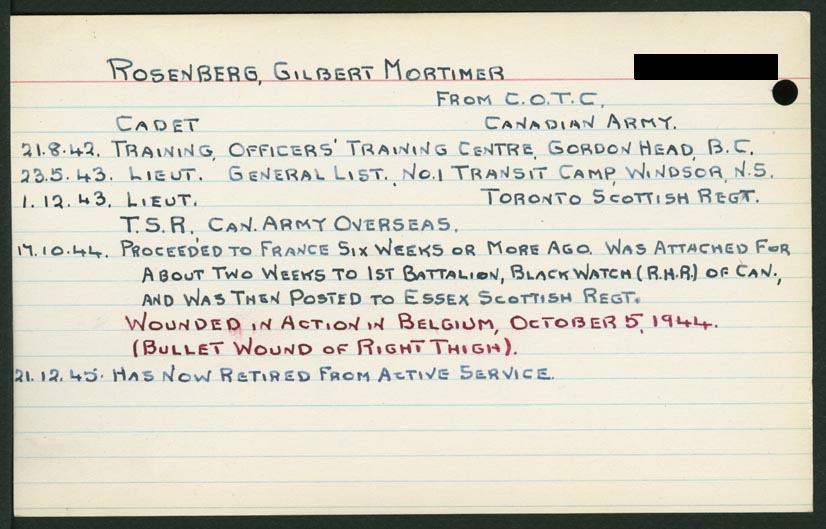 ROSENBERG, GILBERT MORTIMER
FROM C.O.T.C.
CADET CANADIAN ARMY.
21.8.42. TRAINING, OFFICERS' TRAINING CENTRE, GORDON HEAD, B.C.
23.5.43. LIEUT. GENERAL LIST. NO.1 TRANSIT CAMP, WINDSOR, N.S.
1.12.43. LIEUT. TORONTO SCOTTISH REGT.
T.S.R. CAN. ARMY OVERSEAS.
17.10.44. PROCEEDED TO FRANCE SIX WEEKS OR MORE AGO. WAS ATTACHED FOR
ABOUT TWO WEEKS TO 1ST BATTALION, BLACK WATCH (R.H.R.) OF CAN.,
AND WAS THEN POSTED TO ESSEX SCOTTISH REGT.
WOUNDED IN ACTION IN BELGIUM, OCTOBER 5, 1944.
(BULLET WOUND OF RIGHT THIGH).
21.12.45. HAS NOW RETIRED FROM ACTIVE SERVICE.